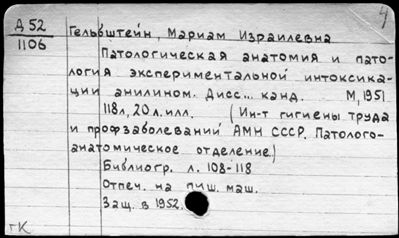 4
Д 52
1106
Гельбштейн, Мариам Израилевна
Патологическая анатомия и пато-
логия экспериментальной интоксика-
ции анилином. Дисс... канд. М, 1951
118л, 20 л. илл. (Ин-т гигиены труда
и профзаболеваний АМН СССР. Патолого-
анатомическое отделение.)
Библиогр. л. 108-118
Отпеч. на пиш. маш.
Защ. в 1952.
гК